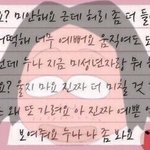 요? 미안해요 근데 허리 좀 더 들
어떡해 너무 예뻐요 움직여도 되
데 누나 지금 미성년자랑 뭐
요? 울지 마요 진짜 더 미칠 것
왜 또 가려요 아 진짜 예쁜
보여줘요 누나 나 좀 봐요